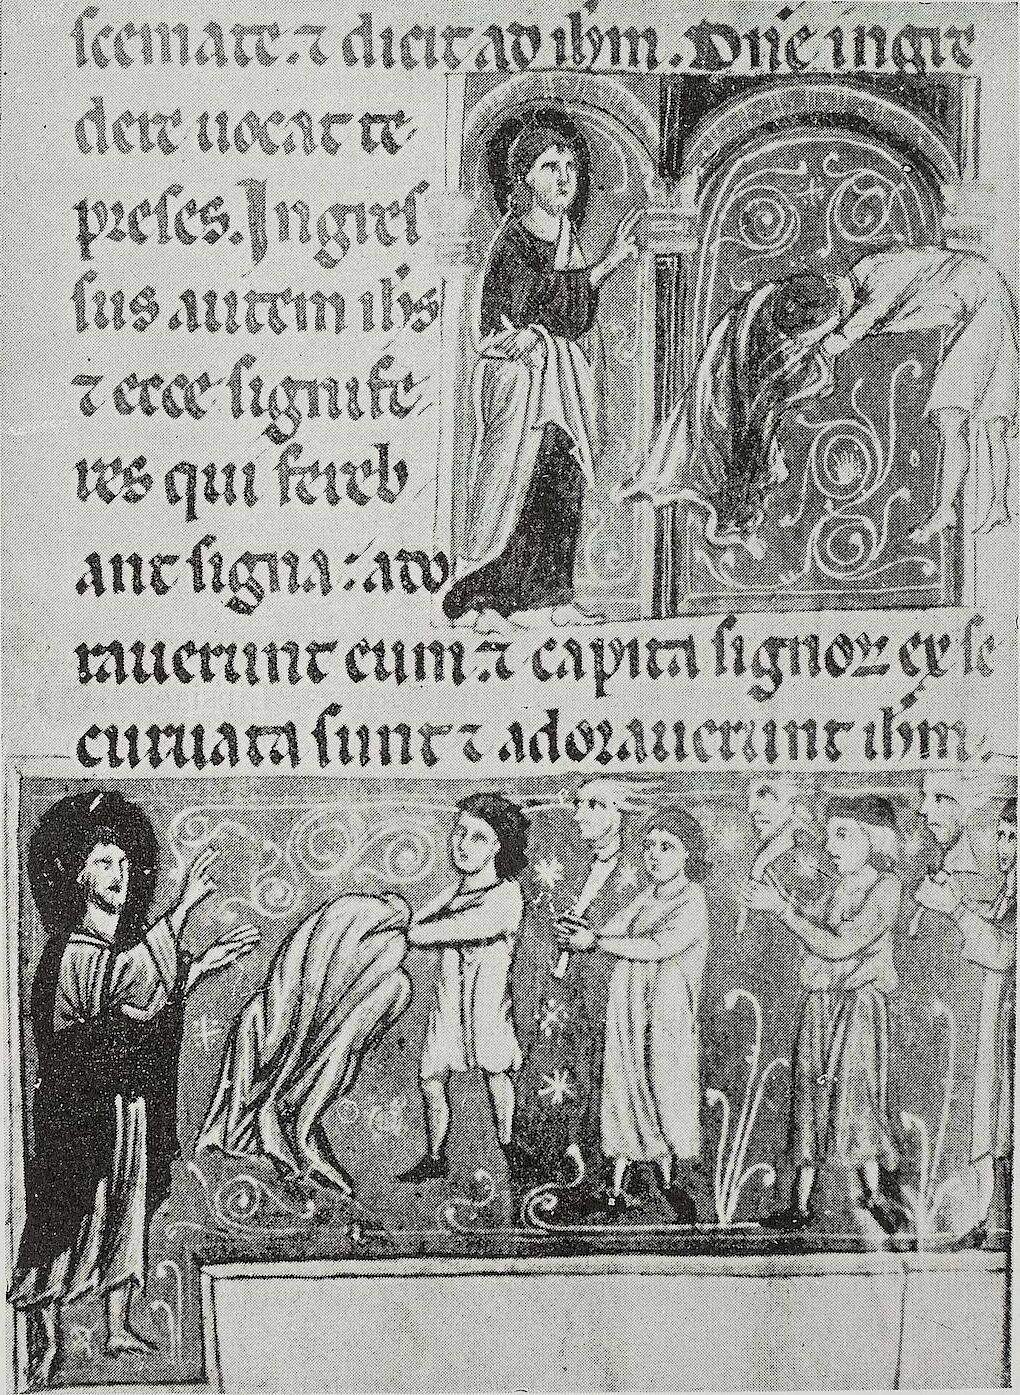 scemate. ⁊ dicit ad ihm. Dñe ingre
dere uocat te
preses. Ingres
sus autem ihs
⁊ ecce signife
res qui fereb
ant signa: ado
rauerunt eum. ⁊ capita signoꝝ ex se
curuata sunt ⁊ adorauerunt ihm.